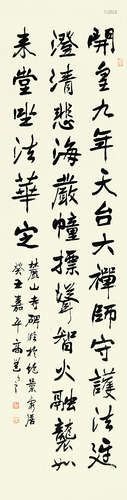 開皇九年天台大禪師守護法
澄清悲海嚴幢摽聳智火融襲如
來堂坐法華定
麓山寺碑臨於景居
癸丑嘉平高邕之